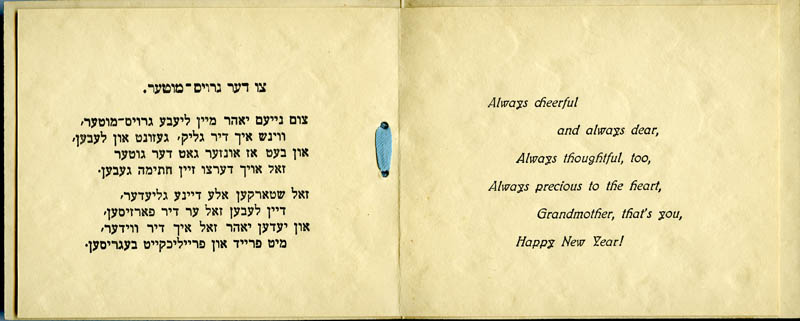 צו דער גרויס־מוטער.
צום נייעם יאהר מיין ליעבע גרויס־מוטער,
ווינש איך דיר גליק, געזונט און לעבען,
און בעט אז אונזער גאט דער גוטער
זאל אויך דערצו זיין חתימה געבען.
זאל שטארקען אלע דיינע גליעדער,
דיין לעבען זאל ער דיר פארזיסען,
און יעדען יאהר זאל איך דיר ווידער,
מיט פרייד און פרייליכקייט בעגריסען.
Always cheerful
and always dear,
Always thoughtful, too,
Always precious to the heart,
Grandmother, that's you,
Happy New Year!